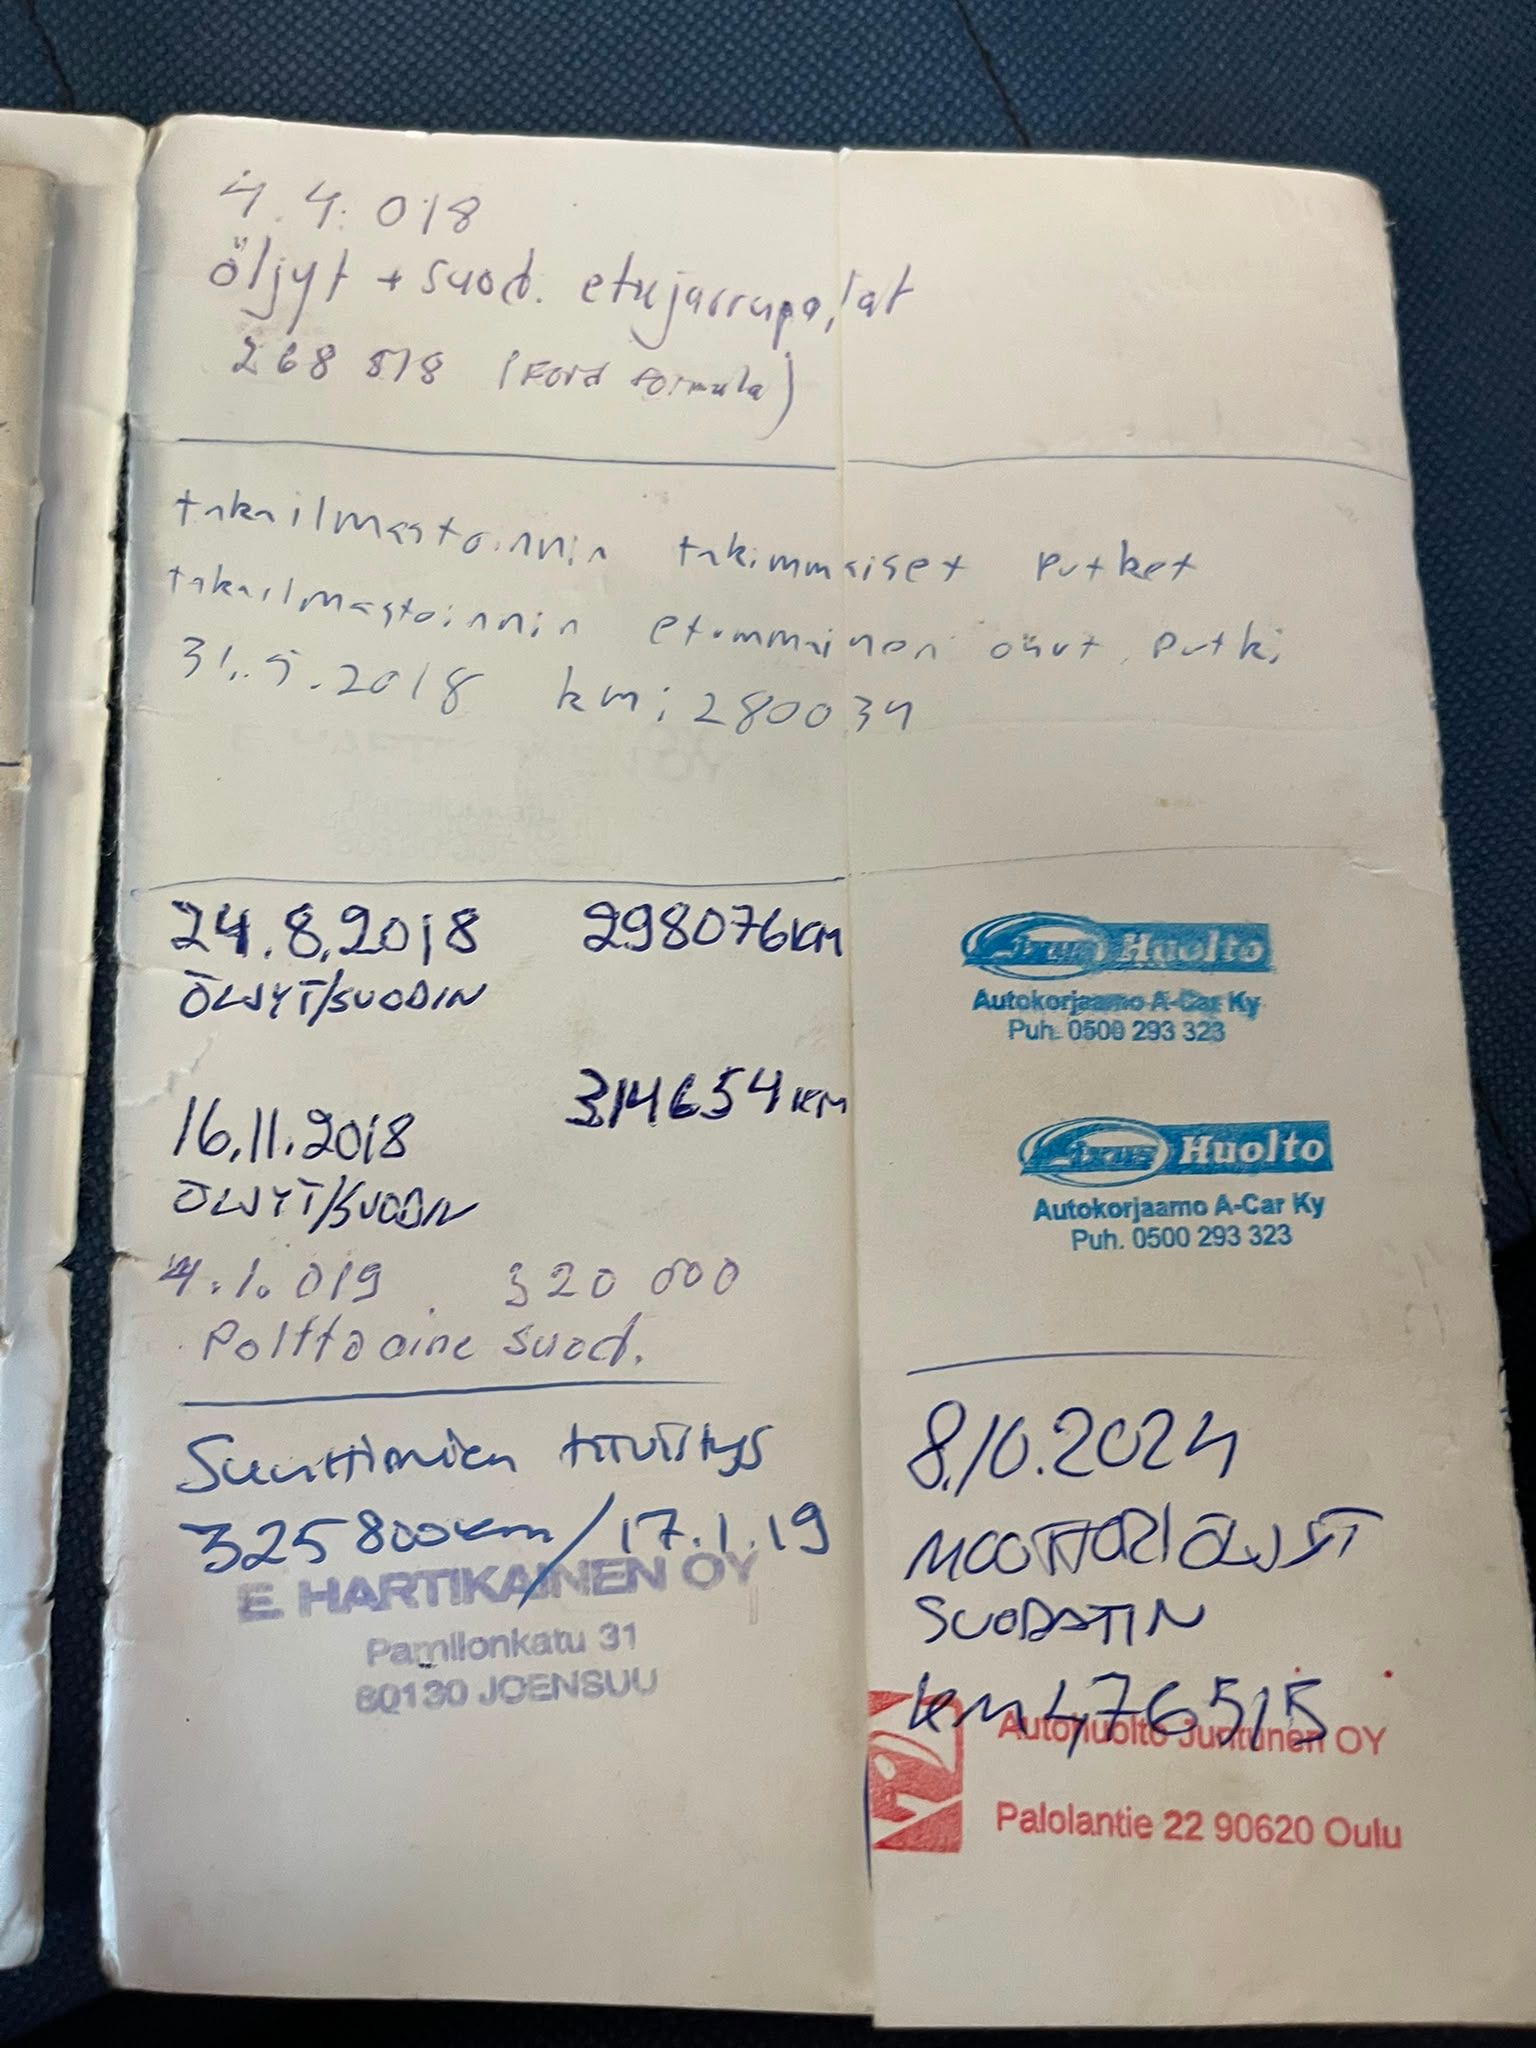 4.4.018
öljyt + suod. etujarrupalat
268 818 (Ford formula)
takailmastoinnin takimmaiset putket
takailmastoinnin etummainen ohut putki
31.5.2018 km: 280034
24.8.2018 298076 KM
ÖLJYT/SUODIN
Huolto
Autokorjaamo A-Car Ky
Puh. 0500 293 323
16.11.2018 314654 KM
ÖLJYT/SUODIN
Huolto
Autokorjaamo A-Car Ky
Puh. 0500 293 323
4.1.019 320 000
Polttoaine suod.
Suuttimien tiivistys
325 800 km / 17.1.19
E. HARTIKAINEN OY
Pamilonkatu 31
80130 JOENSUU
8.10.2024
MOOTTORIÖLJYT
SUODATIN
KM 476515
Autohuolto Juntunen OY
Palolantie 22 90620 Oulu